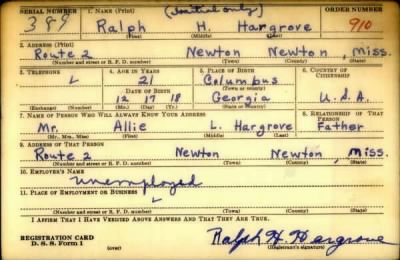 SERIAL NUMBER 1. NAME (Print) (Initial only) ORDER NUMBER
389 Ralph H. Hargrove 910
(First) (Middle) (Last)
2. ADDRESS (Print)
Route 2 Newton Newton, Miss.
(Number and street or R. F. D. number) (Town) (County) (State)
3. TELEPHONE 4. AGE IN YEARS 5. PLACE OF BIRTH 6. COUNTRY OF CITIZENSHIP
21 Columbus
(Town or county)
DATE OF BIRTH
12 17 18 Georgia U.S.A.
(Exchange) (Number) (Mo.) (Day) (Yr.) (State or country)
7. NAME OF PERSON WHO WILL ALWAYS KNOW YOUR ADDRESS 8. RELATIONSHIP OF THAT PERSON
Mr. Allie L. Hargrove Father
(Mr., Mrs., Miss) (First) (Middle) (Last)
9. ADDRESS OF THAT PERSON
Route 2 Newton Newton, Miss.
(Number and street or R. F. D. number) (Town) (County) (State)
10. EMPLOYER'S NAME
Unemployed
11. PLACE OF EMPLOYMENT OR BUSINESS
(Number and street or R. F. D. number) (Town) (County) (State)
I AFFIRM THAT I HAVE VERIFIED ABOVE ANSWERS AND THAT THEY ARE TRUE.
REGISTRATION CARD
D. S. S. Form 1 (over) Ralph H. Hargrove
(Registrant's signature)